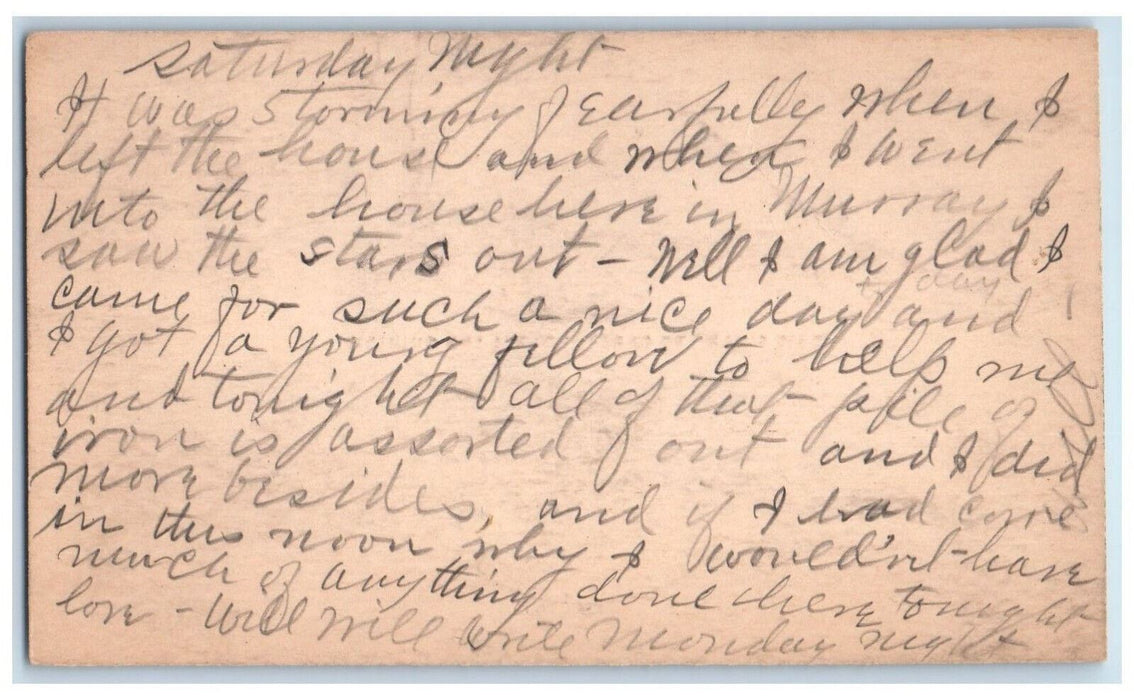 Saturday Night
It was storming fearfully when I
left the house and when I went
into the house here in Murray I
saw the stars out - Well I am glad I
came for such a nice day and
today
I got a young fellow to help me
and tonight all of that pile of
iron is assorted out and I did
more besides, and if I had come
in this noon why I would'nt have
much of anything done here tonight
love - Will will write Monday night